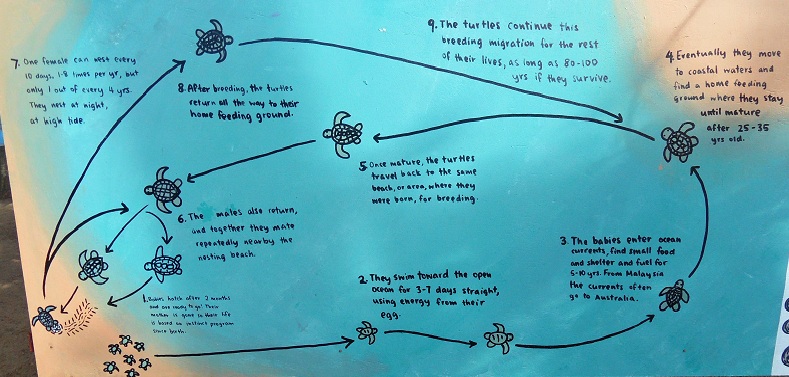 1. Babies hatch after 2 months
and are ready to go! Their
mother is gone so their life
is based on instinct program
since birth.
2. They swim toward the open
ocean for 3-7 days straight,
using energy from their
egg.
3. The babies enter ocean
currents, find small food
and shelter and fuel for
5-10 yrs. From Malaysia
the currents often
go to Australia.
4. Eventually they move
to coastal waters and
find a home feeding
ground where they stay
until mature
after 25-35
yrs old.
5. Once mature, the turtles
travel back to the same
beach, or area, where they
were born, for breeding.
6. The males also return,
and together they mate
repeatedly nearby the
nesting beach.
7. One female can nest every
10 days, 1-8 times per yr, but
only 1 out of every 4 yrs.
They nest at night,
at high tide.
8. After breeding, the turtles
return all the way to their
home feeding ground.
9. The turtles continue this
breeding migration for the rest
of their lives, as long as 80-100
yrs if they survive.